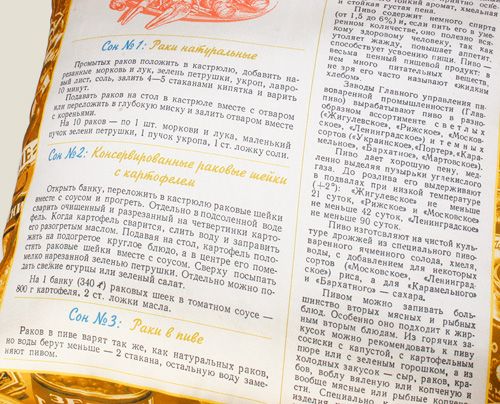 Сон №1: Раки натуральные
Промытых раков положить в кастрюлю, добавить на-
резанные морковь и лук, зелень петрушки, укроп, лавро-
лист, соль, залить 4—5 стаканами кипятка и варить
10 минут.
Подавать раков на стол в кастрюле вместе с отваром
или переложить в глубокую миску и залить отваром вместе
с кореньями.
На 10 раков — по 1 шт. моркови и лука, маленький
пучок зелени петрушки, 1 пучок укропа, 1 ст. ложку соли.
Сон №2: Консервированные раковые шейки
с картофелем
Открыть банку, переложить в кастрюлю раковые шейки
вместе с соусом и прогреть. Отдельно в подсоленной воде
сварить очищенный и разрезанный на четвертинки карто-
фель. Когда картофель сварится, слить воду и заправить
его разогретым маслом. Подавая на стол, картофель поло-
жить на подогретое круглое блюдо, а в центре его поме-
стить раковые шейки вместе с соусом. Сверху посыпать
мелко нарезанной зеленью петрушки. Отдельно можно по-
дать свежие огурцы или зеленый салат.
На 1 банку (340 г) раковых шеек в томатном соусе —
800 г картофеля, 2 ст. ложки масла.
Сон №3: Раки в пиве
Раков в пиве варят так же, как натуральных раков,
но воды берут меньше — 2 стакана, остальную воду заме-
няют пивом.
тонкий аромат, хмельная
и стойкая густая пена.
Пиво содержит немного спирта
(от 1,5 до 6%) и, если пить его в уме-
ренном количестве, оно полезно вся-
кому здоровому человеку, так как
утоляет жажду, повышает аппетит,
способствует усвоению пищи. Пиво —
весьма ценный пищевой продукт: в
нем много питательных веществ,
не зря его часто называют «жидким
хлебом».
Заводы Главного управления пи-
воваренной промышленности (Глав-
пиво) вырабатывают пиво в разно-
образном ассортименте светлых
(«Жигулевское», «Рижское», «Москов-
ское», «Ленинградское») и темных
сортов («Украинское», «Портер», «Кара-
мельное», «Бархатное», «Мартовское»).
Пиво дает хорошую пену, мед-
ленно выделяя пузырьки углекислого
газа. До розлива его выдерживают
в подвалах при низкой температуре
(+2°): «Жигулевское» не меньше
21 суток, «Рижское» и «Московское»
не меньше 42 суток, «Ленинградское»
не меньше 90 суток.
Пиво изготовляют на чистой куль-
туре дрожжей из специального пиво-
варенного ячменного солода, хмеля,
воды, с добавлением для некоторых
сортов («Московское», «Ленинград-
ское») риса, а для «Карамельного»
и «Бархатного» — сахара.
Пивом можно запивать боль-
шинство вторых мясных и рыбных
блюд. Особенно оно подходит к жир-
ным вторым блюдам. Из горячих за-
кусок можно рекомендовать к пиву
сосиски с капустой, с картофельным
пюре или с зеленым горошком, а из
холодных закусок — сыр, раков, кра-
бов, воблу вяленую или копченую и
вообще мясные или рыбные копчено-
сти. Специально к